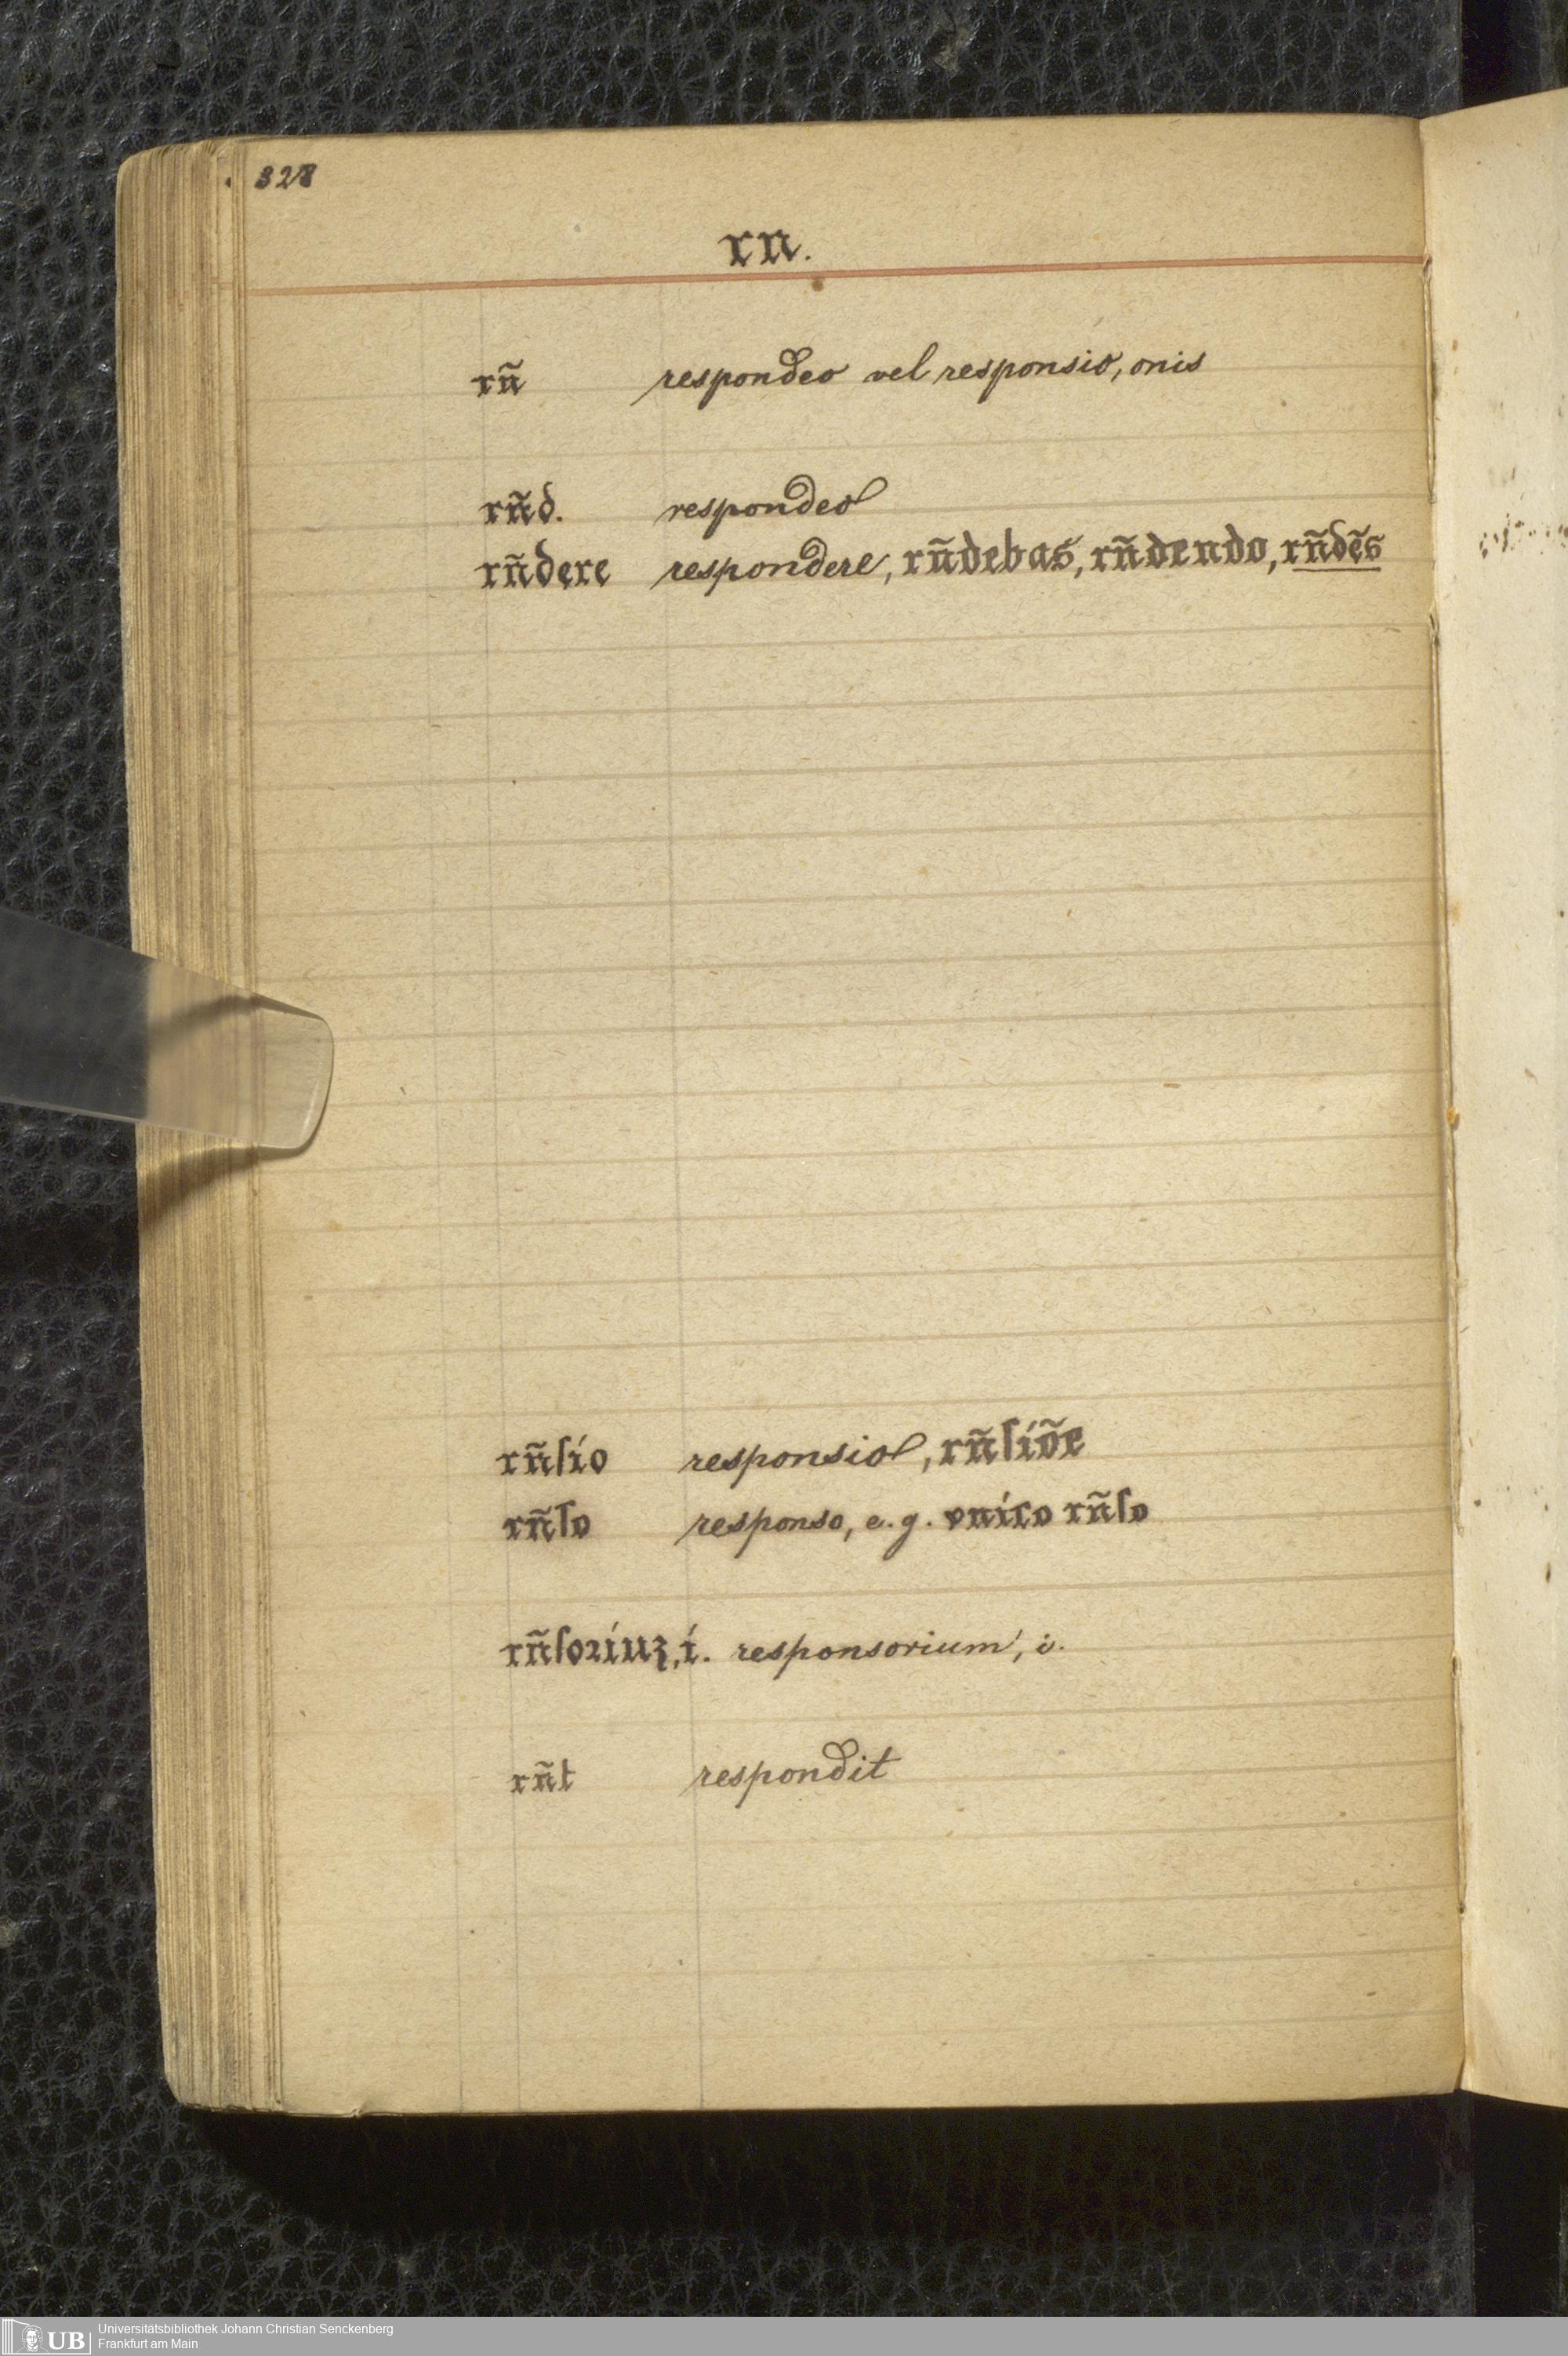 328
rn.
rñ respondeo vel responsio, onis
rñd. respondeo
rñdere respondere, rñdebas, rñdendo, rñdẽs
rñſío responsio, rñſíõe
rñſo responso, e. g. vníco rñſo
rñſoꝛíuz, í. responsorium, i.
rñt respondit
UB Universitätsbibliothek Johann Christian Senckenberg
Frankfurt am Main